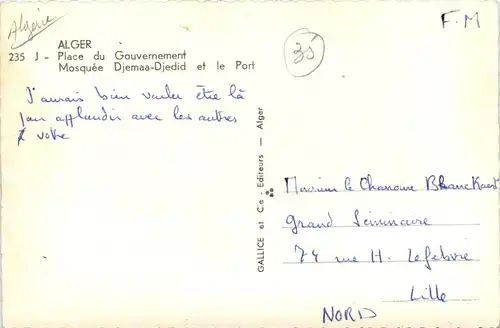 Algérie
F.M
35
ALGER
235 J - Place du Gouvernement
Mosquée Djemaa-Djedid et le Port
J'aurais bien voulu être là
pour applaudir avec les autres
votre
GALLICE et Cie - Editeurs — Alger
Monsieur le Chanoine Blanckaert
Grand Séminaire
74 rue H. Lefebvre
Lille
NORD